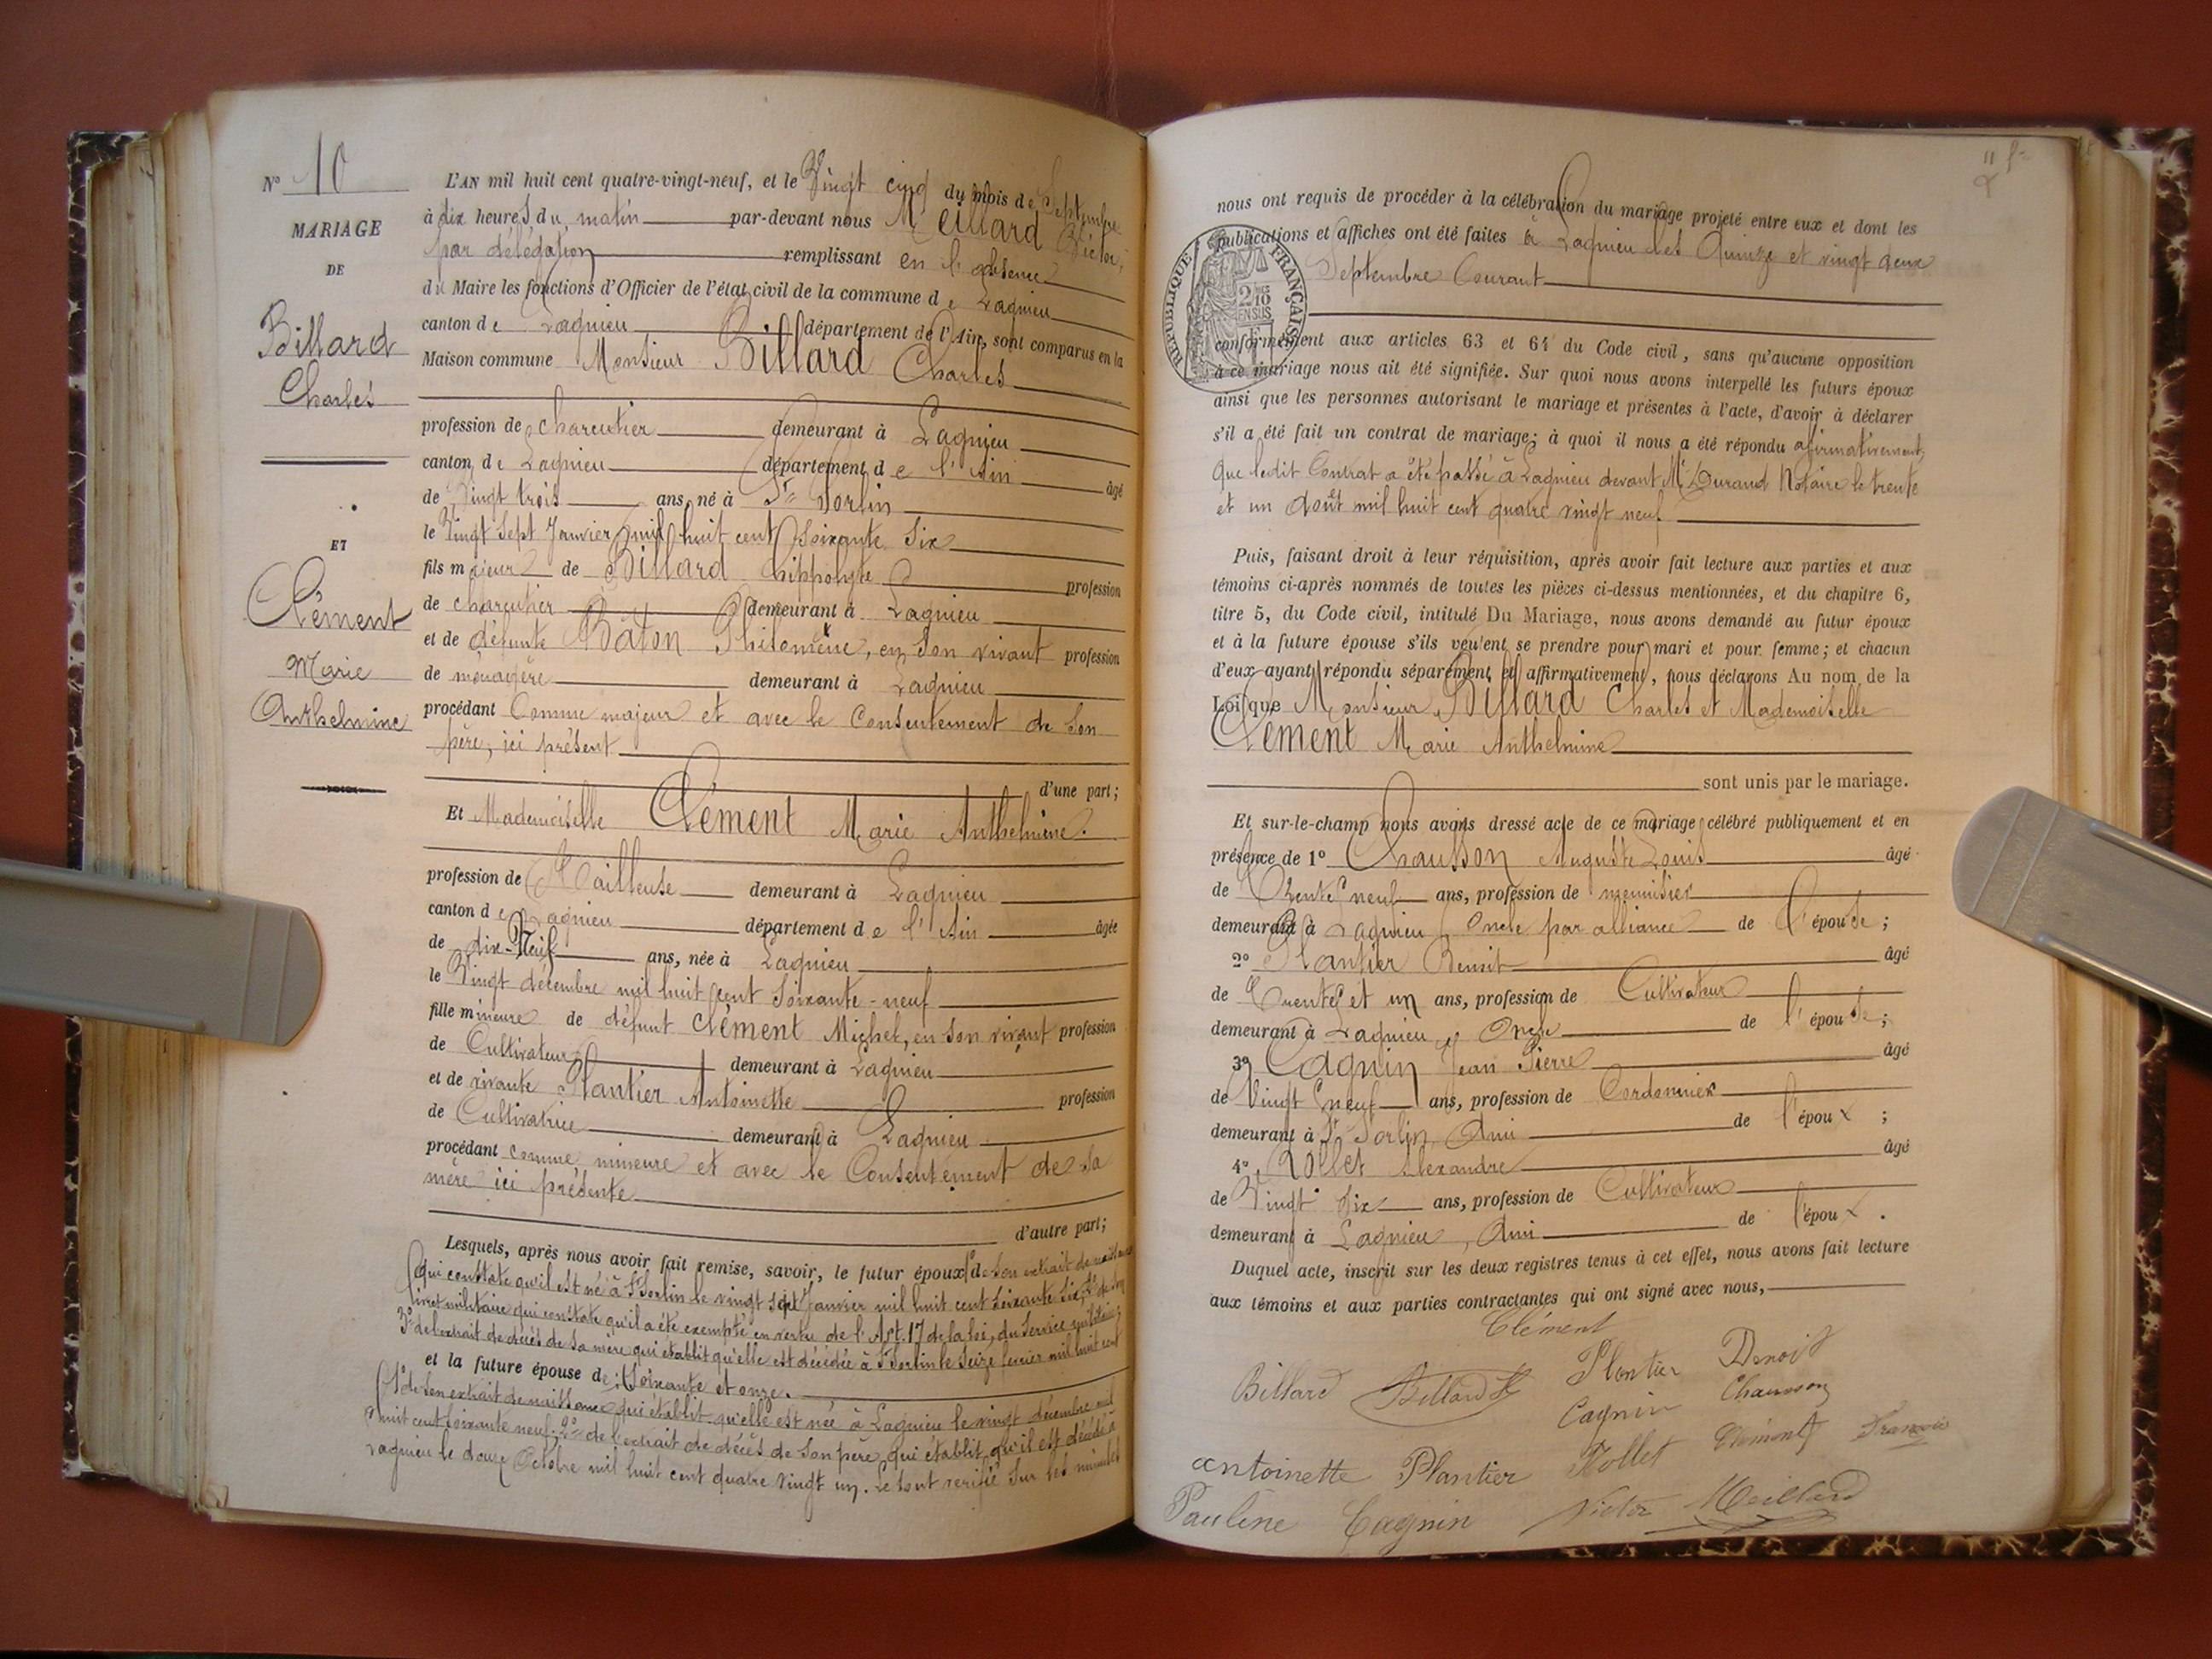 N° 10
MARIAGE
DE
Billard
Charles
ET
Clément
Marie
Anthelmine
L'AN mil huit cent quatre-vingt-neuf, et le Vingt cinq du mois de Septembre
à dix heures du matin par-devant nous Meillard Victor,
par délégation remplissant en l'absence
du Maire les fonctions d'Officier de l'état civil de la commune de Lagnieu
canton de Lagnieu département de l'Ain, sont comparus en la
Maison commune Monsieur Billard Charles
profession de charcutier demeurant à Lagnieu
canton de Lagnieu département de l'Ain âgé
de Vingt trois ans, né à St Sorlin
le Vingt Sept Janvier mil huit cent Soixante Six
fils majeur de Billard hippolyte profession
de charcutier demeurant à Lagnieu
et de défunte Bâton Philomène, en Son vivant profession
de ménagère demeurant à Lagnieu
procédant Comme majeur et avec le Consentement de Son
père, ici présent
d'une part;
Et Mademoiselle Clément Marie Anthelmine.
profession de Tailleuse demeurant à Lagnieu
canton de Lagnieu département de l'Ain âgée
de dix-Neuf ans, née à Lagnieu
le Vingt décembre mil huit cent Soixante-neuf
fille mineure de défunt Clément Michel, en Son vivant profession
de Cultivateur demeurant à Lagnieu
et de vivante Plantier Antoinette profession
de Cultivatrice demeurant à Lagnieu
procédant comme mineure et avec le Consentement de Sa
mère ici présente
d'autre part;
Lesquels, après nous avoir fait remise, savoir, le futur époux 1° de Son extrait de naissance
qui constate qu'il est né à St Sorlin le vingt Sept Janvier mil huit cent Soixante Six, 2° de Son
livret militaire qui constate qu'il a été exempté en vertu de l'Art. 17 de la loi du Service militaire;
3° de l'extrait de décès de Sa mère qui établit qu'elle est décédée à St Sorlin le Seize février mil huit cent
et la future épouse de : Soixante et onze.
1° de Son extrait de naissance qui établit qu'elle est née à Lagnieu le vingt décembre mil
huit cent Soixante neuf. 2° de l'extrait de décès de Son père qui établit qu'il est décédé à
Lagnieu le douze Octobre mil huit cent quatre vingt un. Le tout verifié Sur les minutes
nous ont requis de procéder à la célébration du mariage projeté entre eux et dont les
publications et affiches ont été faites à Lagnieu les Quinze et vingt deux
Septembre Courant
REPUBLIQUE FRANÇAISE
2/10 EN SUS
conformément aux articles 63 et 64 du Code civil, sans qu'aucune opposition
à ce mariage nous ait été signifiée. Sur quoi nous avons interpellé les futurs époux
ainsi que les personnes autorisant le mariage et présentes à l'acte, d'avoir à déclarer
s'il a été fait un contrat de mariage; à quoi il nous a été répondu afirmativement,
Que ledit Contrat a été passé à Lagnieu devant Me Durand Notaire le trente
et un Août mil huit cent quatre vingt neuf
Puis, faisant droit à leur réquisition, après avoir fait lecture aux parties et aux
témoins ci-après nommés de toutes les pièces ci-dessus mentionnées, et du chapitre 6,
titre 5, du Code civil, intitulé Du Mariage, nous avons demandé au futur époux
et à la future épouse s'ils veulent se prendre pour mari et pour femme; et chacun
d'eux ayant répondu séparément et affirmativement, nous déclarons Au nom de la
Loi que Monsieur Billard Charles et Mademoiselle
Clément Marie Anthelmine
sont unis par le mariage.
Et sur-le-champ nous avons dressé acte de ce mariage célébré publiquement et en
présence de 1° Chausson Auguste Louis âgé
de Trente neuf ans, profession de menuisier
demeurant à Lagnieu Oncle par alliance de l'épouse;
2° Plantier Benoit âgé
de Trente et un ans, profession de Cultivateur
demeurant à Lagnieu, Oncle de l'épouse;
3° Cagnin Jean Pierre âgé
de Vingt neuf ans, profession de Cordonnier
demeurant à St Sorlin, Ami de l'époux;
4° Rollet Alexandre âgé
de Vingt Six ans, profession de Cultivateur
demeurant à Lagnieu, Ami de l'époux.
Duquel acte, inscrit sur les deux registres tenus à cet effet, nous avons fait lecture
aux témoins et aux parties contractantes qui ont signé avec nous,
Clément
Billard Billard Plantier Benoit
Cagnin Chausson
Antoinette Plantier Rollet Clément François
Pauline Cagnin Victor Meillard